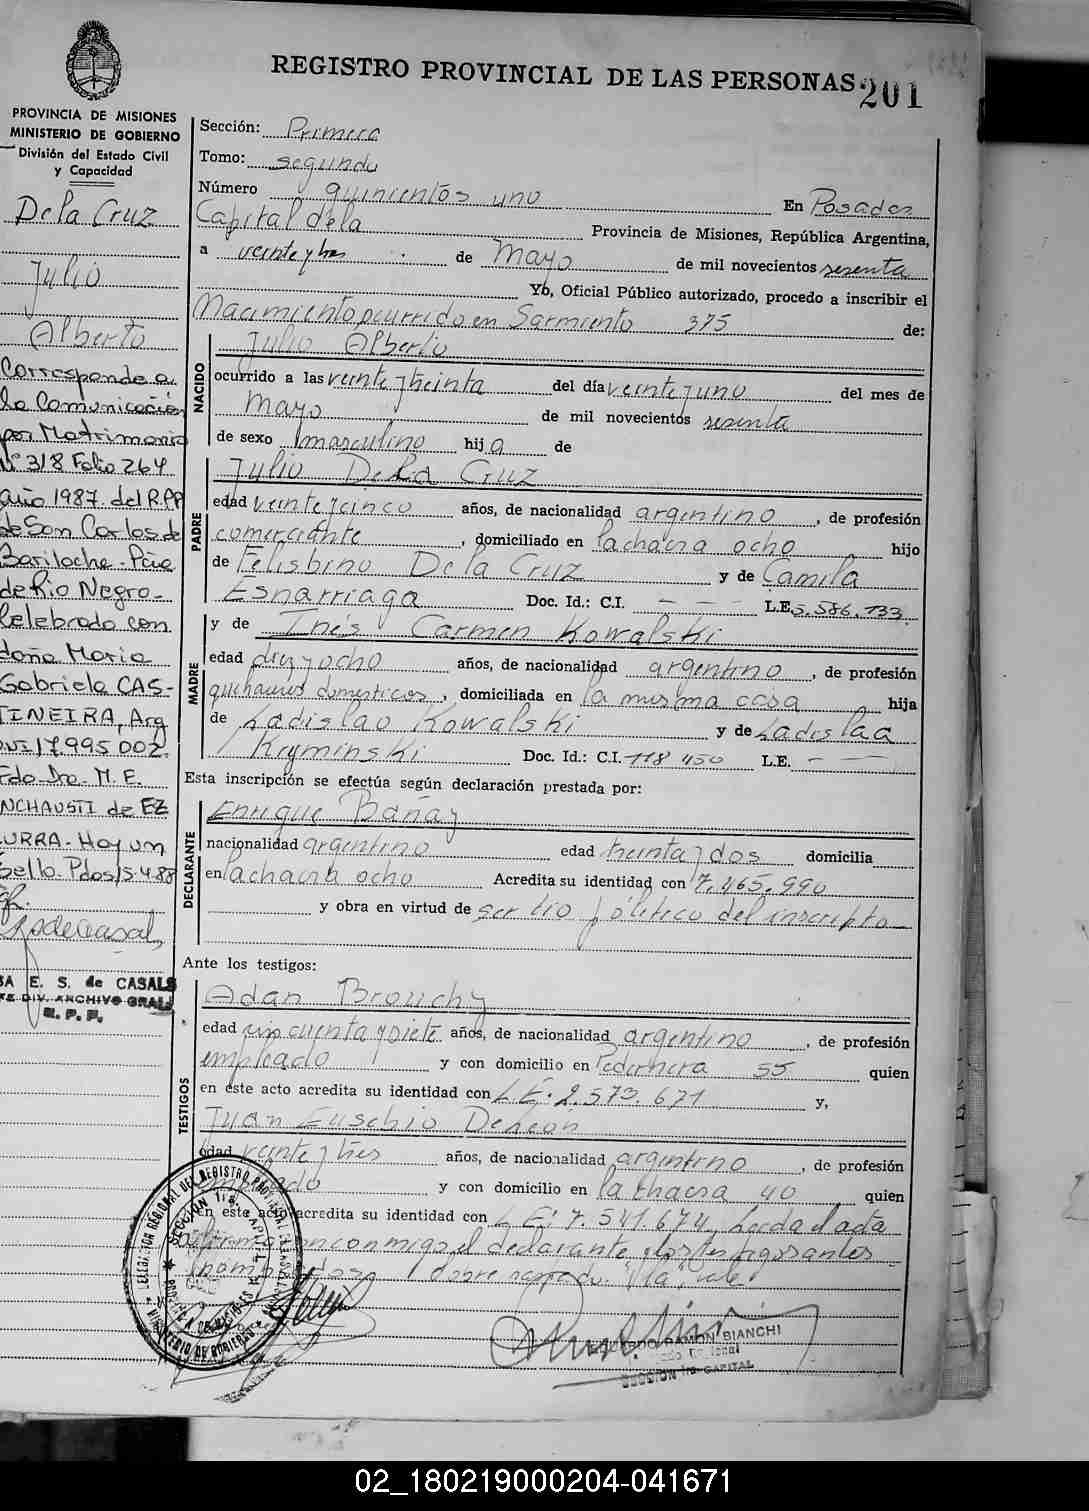 REGISTRO PROVINCIAL DE LAS PERSONAS 201
PROVINCIA DE MISIONES
MINISTERIO DE GOBIERNO
División del Estado Civil
y Capacidad
De la Cruz
Julio
Alberto
Corresponde a
la Comunicación
por Matrimonio
Nº 318 Folio 264
año 1987 del R.P.P
de San Carlos de
Bariloche - Pcia
de Rio Negro -
Celebrado con
doña Maria
Gabriela CAS-
TINEIRA, Arg
17.995.002.
Fdo Dra. M. E.
INCHAUSTI de EZ
CURRA - Hay un
Sello. Pdas 15.4.88
E. S. de CASALS
DIV. ARCHIVO GRAL
R. P. P.
Sección: Primera
Tomo: segundo
Número quinientos uno En Posadas
Capital de la Provincia de Misiones, República Argentina,
a veinte y tres de Mayo de mil novecientos sesenta
Yo, Oficial Público autorizado, procedo a inscribir el
Nacimiento ocurrido en Sarmiento 375 de:
NACIDO
Julio Alberto
ocurrido a las veinte y treinta del día veinte y uno del mes de
Mayo de mil novecientos sesenta
de sexo masculino hijo de
PADRE
Julio De La Cruz
edad veinte y cinco años, de nacionalidad argentino, de profesión
comerciante, domiciliado en la chacra ocho hijo
de Felisbino De la Cruz y de Camila
Esnarriaga Doc. Id.: C.I. — — — L.E. 5.586.133
MADRE
y de Inés Carmen Kowalski
edad diez y ocho años, de nacionalidad argentino, de profesión
quehaceres domesticos, domiciliada en la misma casa hija
de Ladislao Kowalski y de Ladislaa
Kryminski Doc. Id.: C.I. 118 450 L.E. — —
Esta inscripción se efectúa según declaración prestada por:
DECLARANTE
Enrique Bañay
nacionalidad argentino edad treinta y dos domicilia
en la chacra ocho Acredita su identidad con 7.465.990
y obra en virtud de ser tio político del inscripto
Ante los testigos:
TESTIGOS
Adan Brouchy
edad cincuenta y siete años, de nacionalidad argentino, de profesión
empleado y con domicilio en Pedernera 55 quien
en este acto acredita su identidad con L.E. 2.573.671 y,
Juan Eusebio
edad veinte y tres años, de nacionalidad argentino, de profesión
empleado y con domicilio en la chacra 40 quien
en este acto acredita su identidad con L.E. 7.541.674, Leida el acta
firman conmigo el declarante y los testigos antes
nombrados, sobre raspado: "la", vale
RAMON BIANCHI
SECCION 1ra CAPITAL
DELEGACION REGIONAL DEL REGISTRO PROVINCIAL DE LAS PERSONAS
SECCION 1ra. CAPITAL
PROVINCIA DE MISIONES
MINISTERIO DE GOBIERNO
02_180219000204-041671